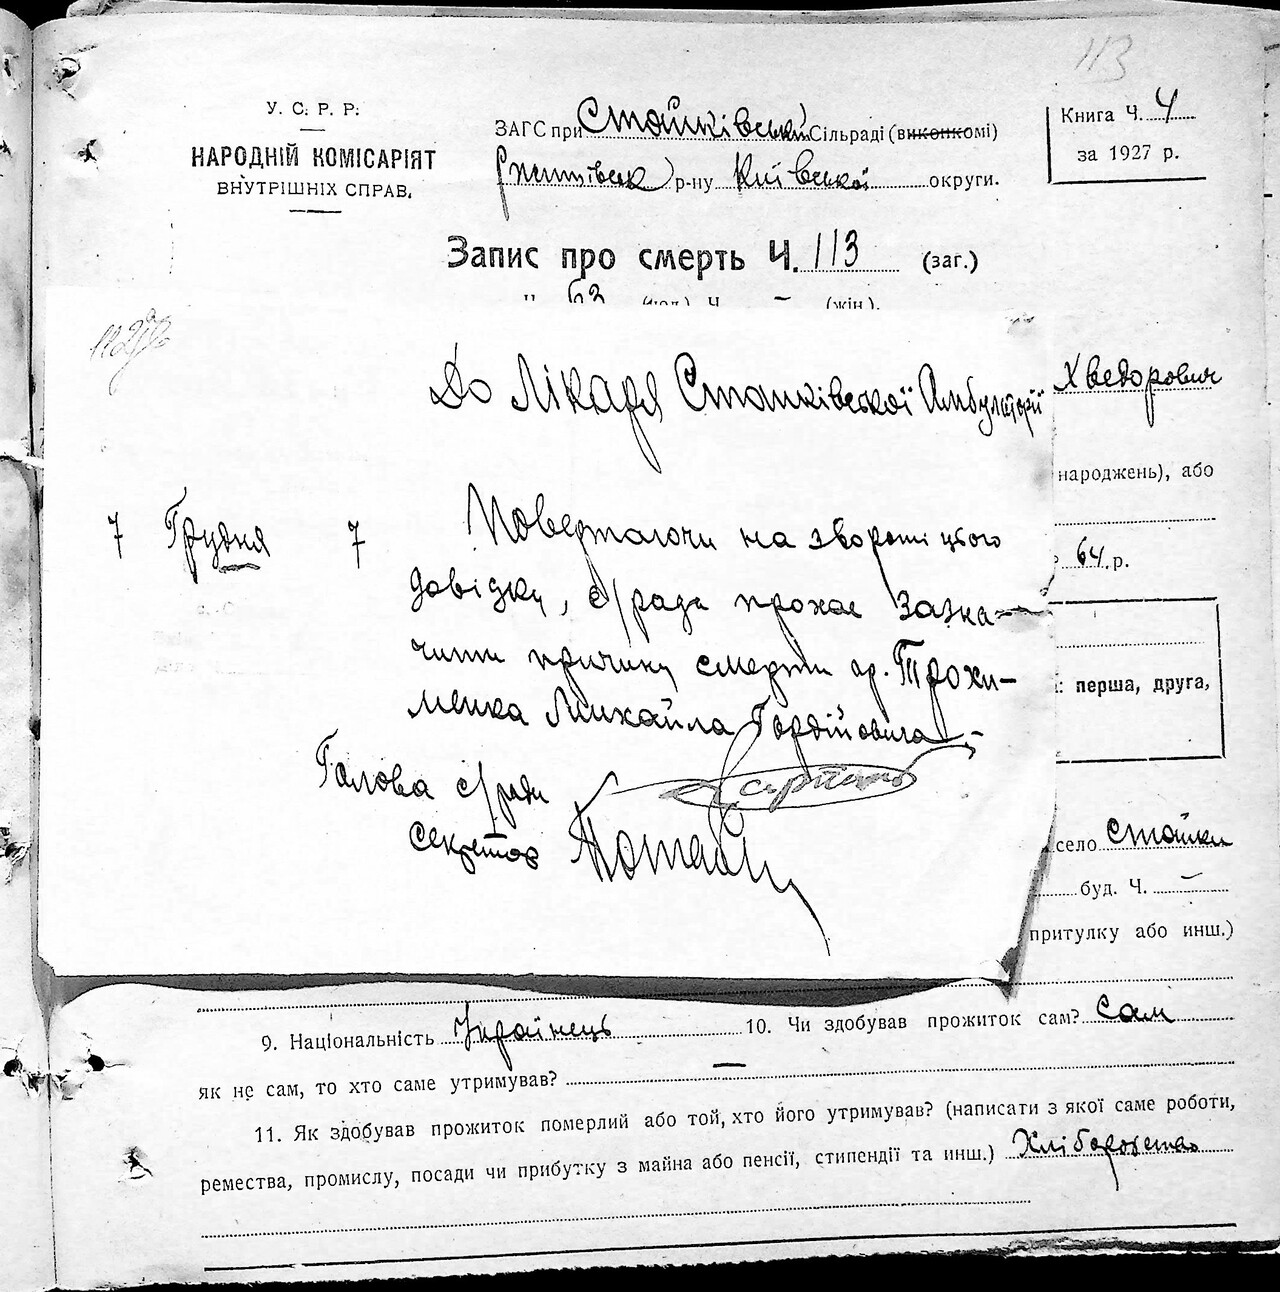 113
У. С. Р. Р.
НАРОДНІЙ КОМІСАРІЯТ
ВНУТРІШНІХ СПРАВ.
ЗАГС при Стайківській Сільраді (виконкомі)
Ржищівськ р-ну Київської округи.
Книга Ч. 4
за 1927 р.
Запис про смерть Ч. 113 (заг.)
" 63 (чол.) Ч. – (жін.).
До Лікаря Стайківської Амбулаторії
Хведорович
народжень), або
7 Грудня 7
Повертаючи на звороті цього
довідку, с/рада прохає зазна-
чити причину смерти гр. Трохи-
менка Михайла Гордійовича
64 р.
перша, друга,
Голова с/ради
Секретар
село Стайки
буд. Ч. –
притулку або инш.)
9. Національність Українець 10. Чи здобував прожиток сам? Сам
як не сам, то хто саме утримував? —
11. Як здобував прожиток померлий або той, хто його утримував? (написати з якої саме роботи,
ремества, промислу, посади чи прибутку з майна або пенсії, стипендії та инш.) Хліборобство